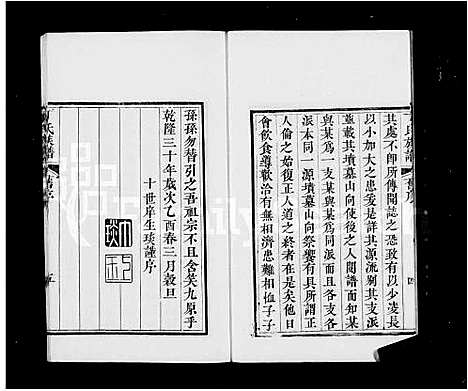 其處不即所傳聞誌之恐致有以少凌長
以小加大之患爰是詳其源流別其支派
並載其墳墓山向使後之人閱譜而知某
與某為一支某與某為同派而且各支各
派本同一源墳墓山向祭饗有具所謂正
人倫之始厚正人道之終者在是矣他日
會飲食尊歡洽有無相濟患難相恤子子
孫孫勿替引之吾祖宗不且含笑九原乎
乾隆三十年歲次乙酉春三月穀旦
十世庠生琰謹序
氏族譜
舊序
五